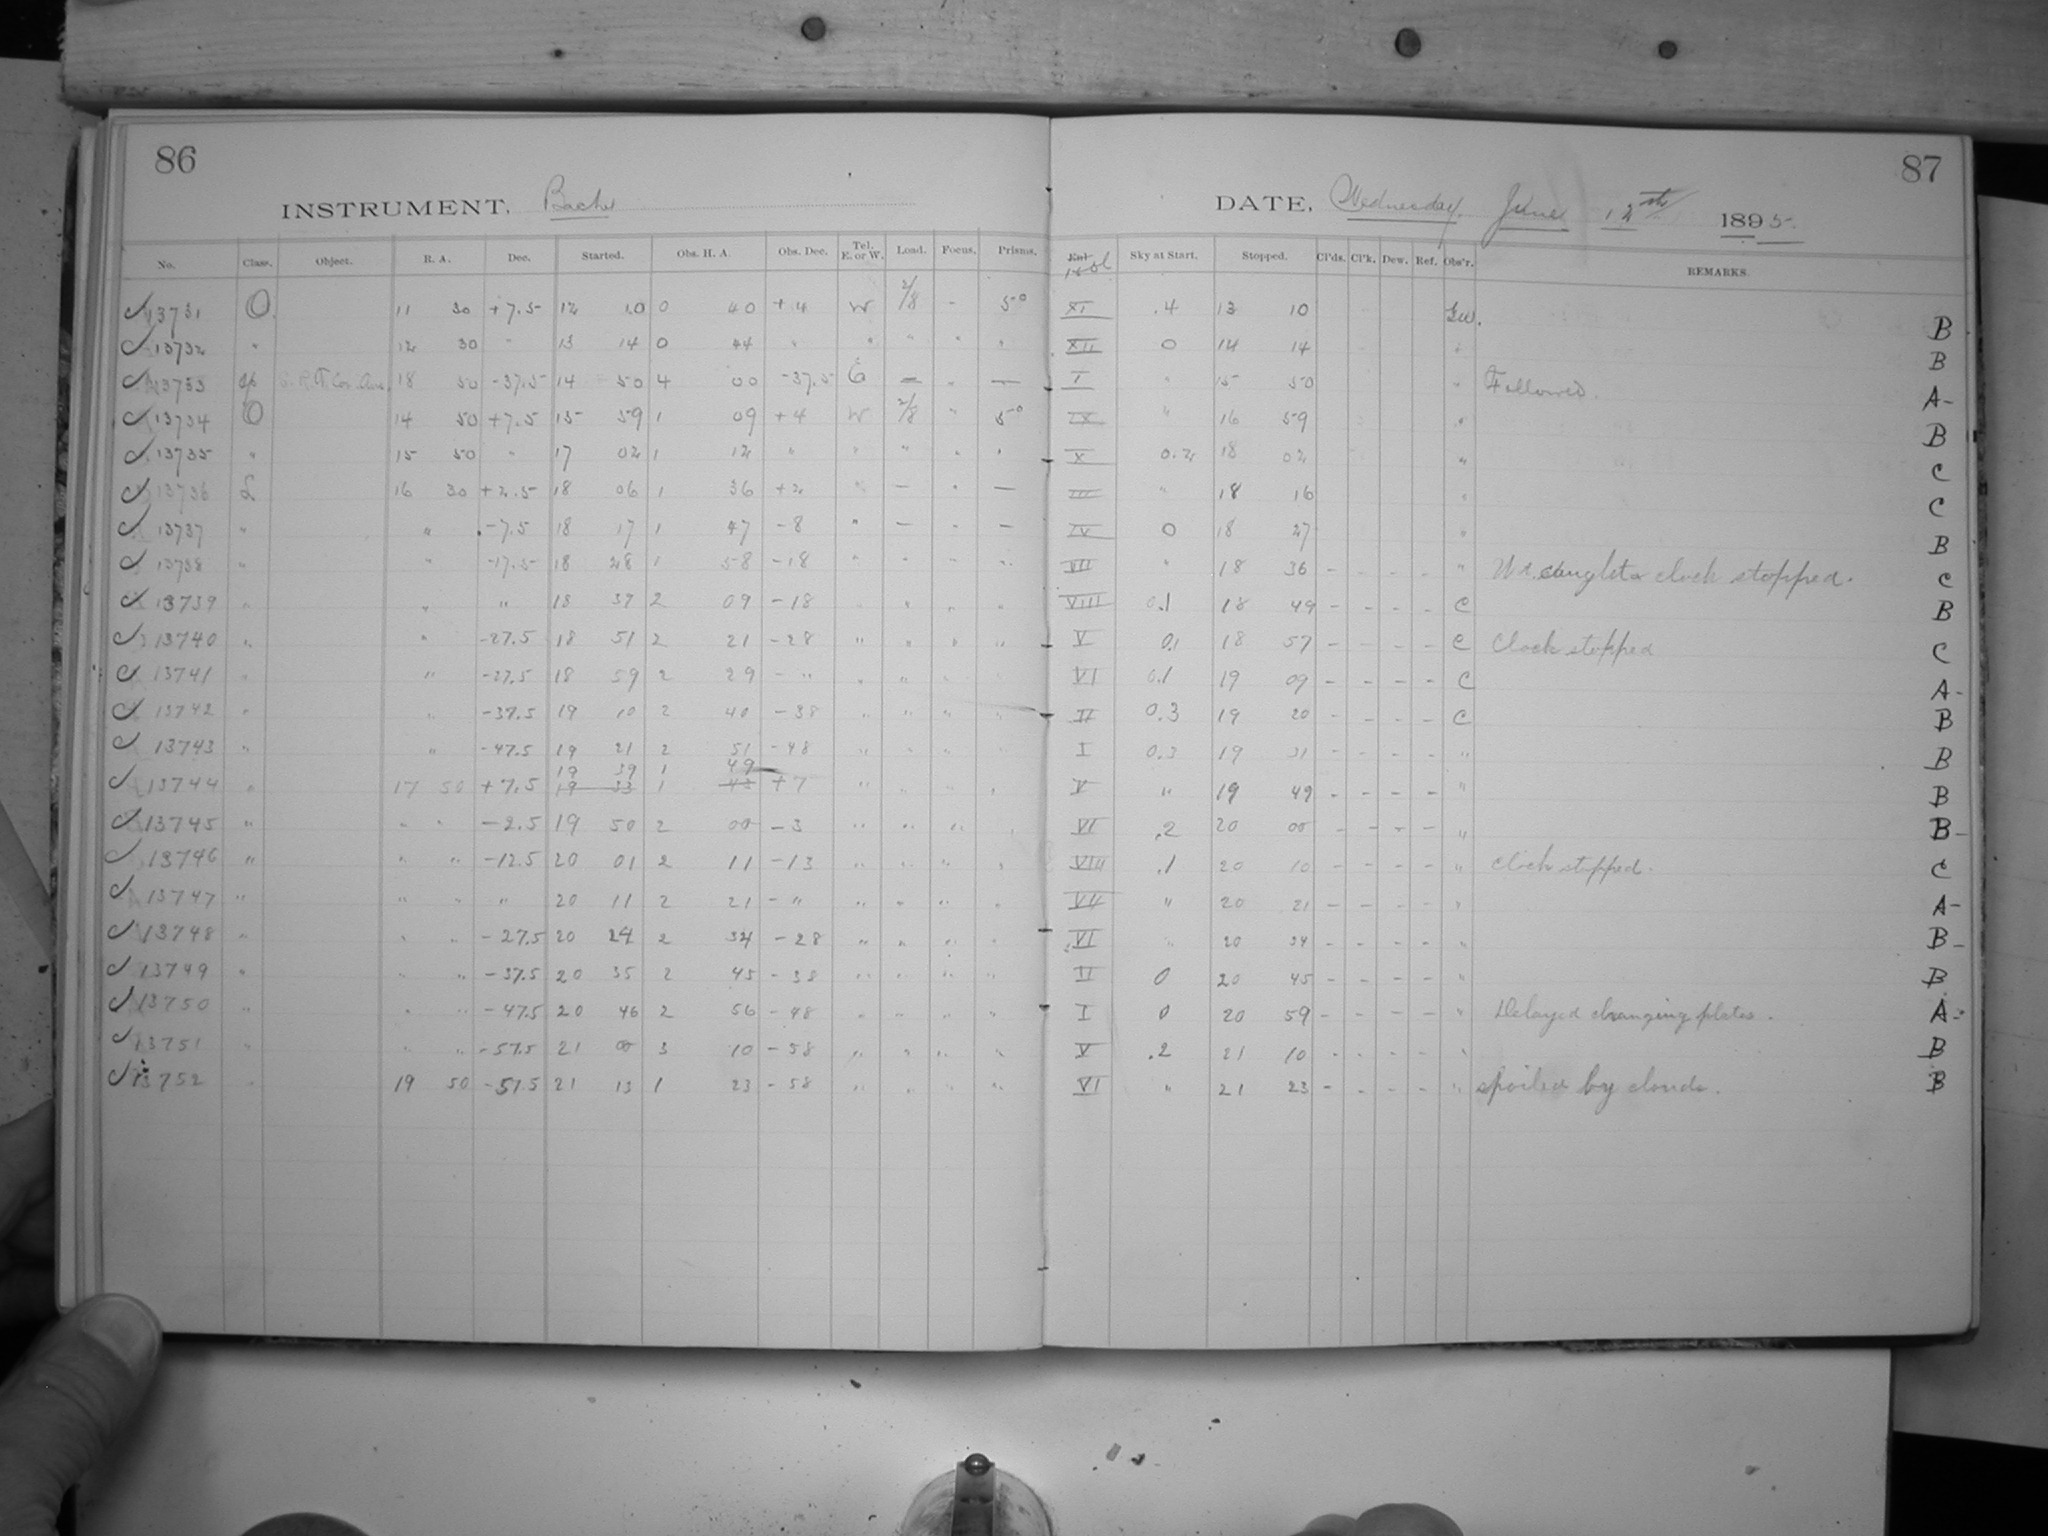 86
INSTRUMENT, Bache
No. Class. Object. R. A. Dec. Started. Obs. H. A. Obs. Dec. Tel. E. or W. Load. Focus. Prisms.
13731 O 11 30 +7.5 12 10 0 40 +4 W 2/8 - 5°
13732 " 12 30 " 13 14 0 44 " " " " "
13733 18 50 -37.5 14 50 4 00 -37.5 E — " —
13734 O 14 50 +7.5 15 59 1 09 +4 W 2/8 " 5°
13735 " 15 50 " 17 02 1 12 " " " " "
13736 L 16 30 +2.5 18 06 1 36 +2 " — " —
13737 " " -7.5 18 17 1 47 -8 " — - —
13738 " " -17.5 18 28 1 58 -18 " " " "
13739 " " " 18 39 2 09 -18 " " " "
13740 " " -27.5 18 51 2 21 -28 " " " "
13741 " " -27.5 18 59 2 29 - " " " " "
13742 " " -37.5 19 10 2 40 -38 " " " "
13743 " " -47.5 19 21 2 51 -48 " " " "
19 39 1 49
13744 " 17 50 +7.5 19 33 1 43 +7 " " " "
13745 " " " -2.5 19 50 2 00 -3 " " " "
13746 " " " -12.5 20 01 2 11 -13 " " " "
13747 " " " " 20 11 2 21 - " " " " "
13748 " " " -27.5 20 24 2 34 -28 " " " "
13749 " " " -37.5 20 35 2 45 -38 " " " "
13750 " " " -47.5 20 46 2 56 -48 " " " "
13751 " " " -57.5 21 00 3 10 -58 " " " "
13752 " 19 50 -57.5 21 13 1 23 -58 " " " "
87
DATE, Wednesday June 12th 1895
Sky at Start. Stopped. Cl'ds. Cl'k. Dew. Ref. Obs'r. REMARKS.
XI .4 13 10 B
XII 0 14 14 " B
I " 15 50 " Followed. A-
IX " 16 59 " B
X 0.2 18 02 " C
III " 18 16 " C
IV 0 18 27 " B
VII " 18 36 - - - - " clock stopped. C
VIII 0.1 18 49 - - - - C B
V 0.1 18 57 - - - - C Clock stopped C
VI 0.1 19 09 - - - - C A-
II 0.3 19 20 - - - - C B
I 0.3 19 31 - - - - " B
V " 19 49 - - - - " B
VI .2 20 00 - - - - " B-
VIII .1 20 10 - - - - " Clock stopped. C
VII " 20 21 - - - - " A-
VI " 20 34 - - - - " B-
II 0 20 45 - - - - " B
I 0 20 59 - - - - " Delayed changing plates. A-
V .2 21 10 - - - - " B
VI " 21 23 - - - - " Spoiled by clouds. B